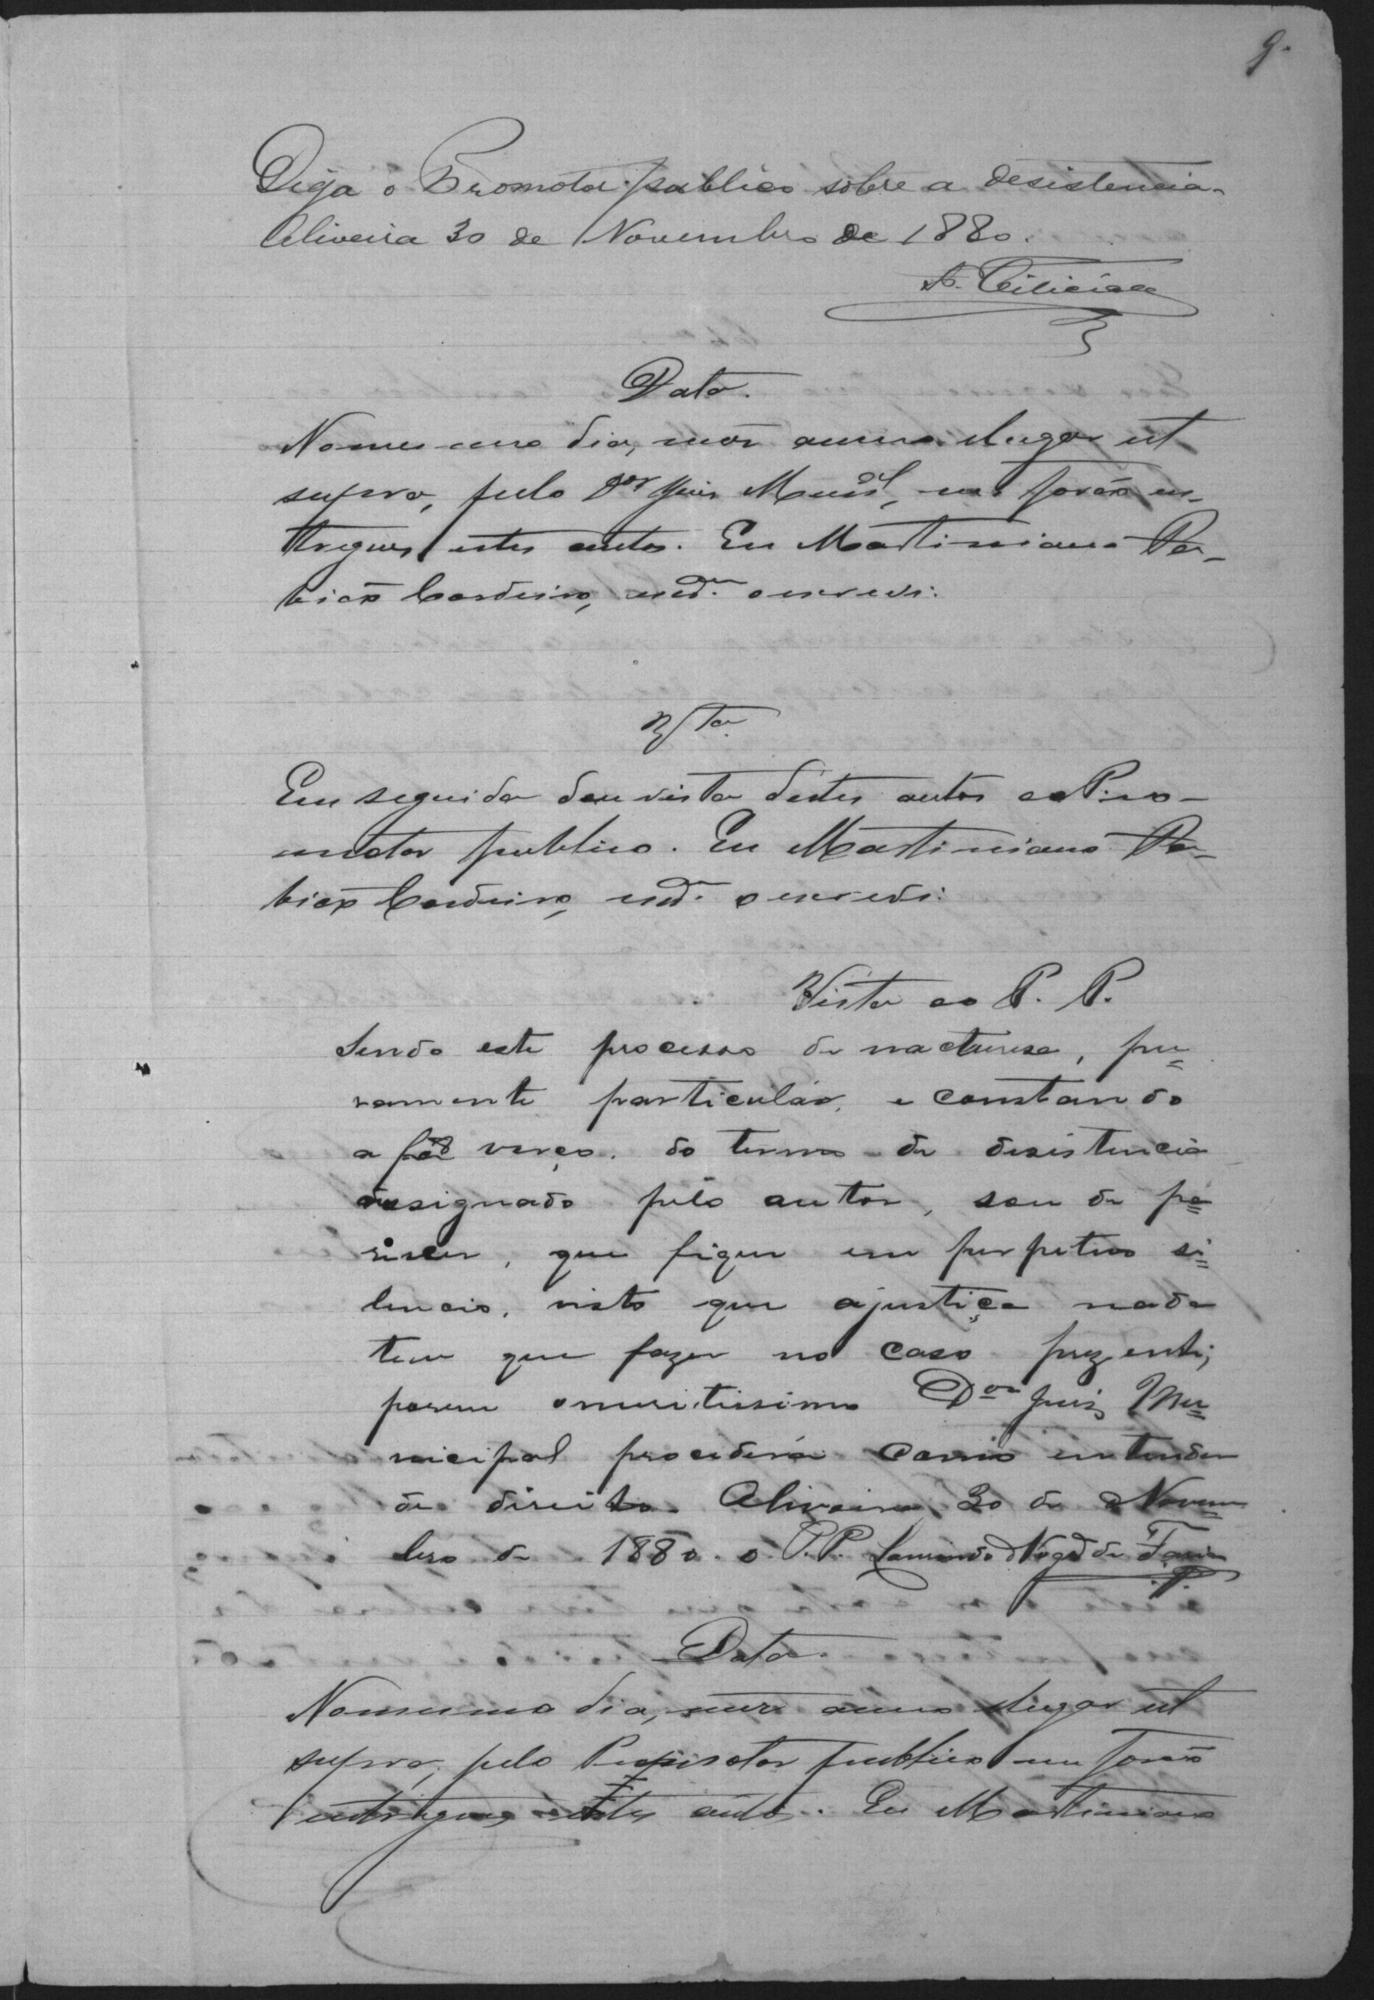 9.
Diga o Promotor publico sobre a desistencia.
Oliveira 30 de Novembro de 1880.
Data.
No mesmo dia, mez anno e lugar ut
supra, pelo Dor Juis Municl, me forão en-
tregues estes autos. Eu Martiniano
Cordeiro, o escrevi.
Vta
Em seguida dou vista destes autos ao Pro-
motor publico. Eu Martiniano
Cordeiro, o escrevi.
Vista ao P. P.
Sendo este processo de nactureza, pu=
ramente particular, e constando
a verço. do termo de desistencia
assignado pelo autor, sou de pa=
recer, que fique em perpetuo si=
lencio, visto que ajustiça nada
tem que fazer no caso prezente;
porem o meritissimo Dor Juis Mu=
nicipal procederá como entender
de direito. Oliveira, 30 de Novem=
bro de 1880. o P. P. de Faria
Data
No mesmo dia, mez anno e lugar ut
supra, pelo Promotor publico me forão
entregues estes autos. Eu Martiniano